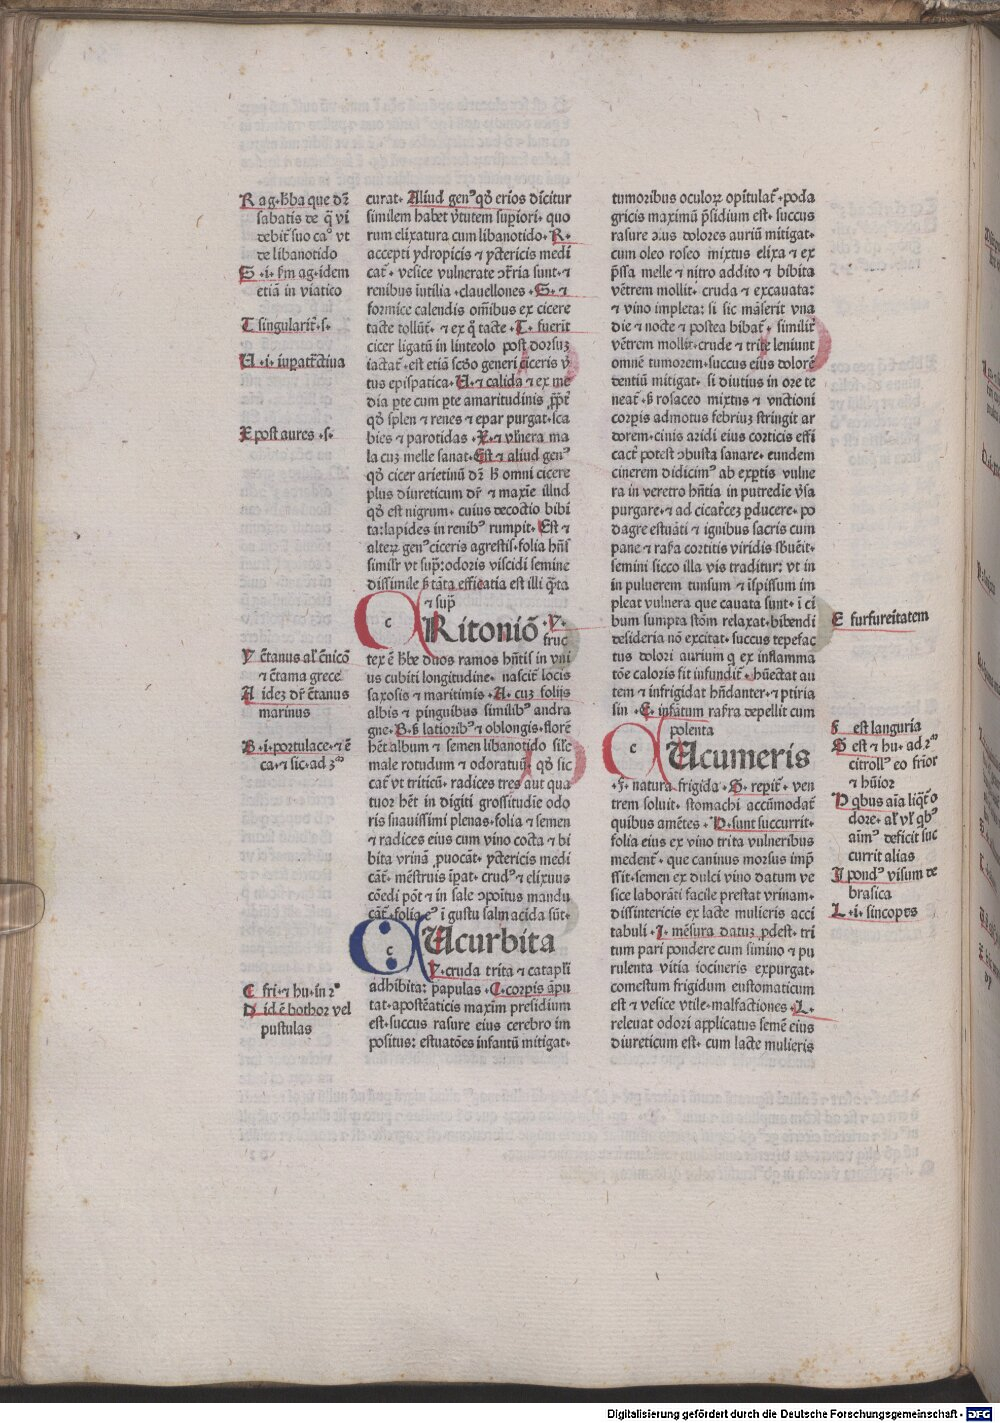 R ag·hͤba que dꝛ̄
sabatis de q̄ vi
debit᷑ suo caᵒ vt
de libanotido
S ·i· ẜm ag·idem
etiā in viatico
T singularit᷑·s·
X post aures ·s·
Y c̄tanus al᷑ c̄nicō
⁊ c̄tama grece
A idez dꝛ᷑ c̄tanus
marinus
B ·i·portulace·⁊ ē
ca·⁊ sic·ad ꝫᵐ
C fri·⁊ hu·in 2ᵒ
D id ē bothor vel
pustulas
curat· Aliud genꝰ qd̄ erios dicitur
similem habet v̄tutem supiori· quo
rum elixatura cum libanotido·R·
accepti ydropicis ⁊ yctericis medi
cat᷑· vesice vulnerate ↄt᷑ria sunt·⁊
renibus inutilia ·clauellones ·S· ⁊
formice calendis om̄ibus ex cicere
tacte tollūt᷑· ⁊ ex q̄ tacte ·T· fuerit
cicer ligatū in linteolo post dorsuz
iactat᷑·est etiā scd̄o generi ciceris v̄
tus epispatica· U·⁊ calida ⁊ ex me
dia p̱te cum p̱te amaritudinis p̱p̄t᷑
qd̄ splen ⁊ renes ⁊ epar purgat·sca
bies ⁊ parotidas ·X·⁊ vlnera ma
la cuz melle sanat·Est ⁊ aliud genꝰ
qd̄ cicer arietinū dꝛ̄ hꝫ omni cicere
plus diureticum dr᷑ ⁊ maxīe illud
qd̄ est nigrum· cuius decoctio bibi
ta:lapides in renibꝰ rumpit· Est ⁊
alteꝝ genꝰ ciceris agrestis·folia hn̄s
simil᷑r vt sup̄:odoris viscidi semine
dissimile ꝫ tāta efficatia est illi q̄ta
⁊ sup̄
CRitoniō ·Y·
fruc
tex ē hͤbe duos ramos hn̄tis in vni
us cubiti longitudine· nascit᷑ locis
saxosis ⁊ maritimis ·A· cuz folijs
albis ⁊ pinguibus similibꝰ andra
gne·B·ꝫ latioribꝰ ⁊ oblongis·florē
hēt album ⁊ semen libanotido sil᷑e
male rotudum ⁊ odoratuū· qd̄ sic
cat᷑ vt triticū· radices tres aut qua
tuor hēt in digiti grossitudīe odo
ris suauissimi plenas·folia ⁊ semen
⁊ radices eius cum vino cocta ⁊ bi
bita vrinā p̱uocāt· yctericis medi
cāt᷑· mēstruis īpat᷑· crudꝰ ⁊ elixuus
cōedi pōt ⁊ in sale ↄpoitus mandu
cat᷑·folia eꝰ ī gustu salm acida sūt·
CUcurbita
Y·cruda trita ⁊ catapli
adhibita: papulas ·C·corpis āpu
tat·apostēaticis maxim presidium
est·succus rasure eius cerebro im
positus: estuatōes infantū mitigat·
tumoribus oculoꝝ opitulat᷑·poda
gricis maximū p̄sidium est· succus
rasure eius dolores auriū mitigat·
cum oleo roseo mixtus elixa ⁊ ex
p̄ssa melle ⁊ nitro addito ⁊ bibita
vētrem mollit· cruda ⁊ excauata:
⁊ vino impleta: si sic māserit vna
die ⁊ nocte ⁊ postea bibat᷑· similit᷑
vētrem mollit·crude ⁊ trite leniunt
omnē tumorem·succus eius dolorē
dentiū mitigat· si diutius in ore te
neat᷑·ꝫ rosaceo mixtus ⁊ vnctioni
corpis admotus febriuz stringit ar
dorem·cinis aridi eius corticis effi
caciꝰ potest ↄbusta sanare· eundem
cinerem didicimꝰ ab exp̱tis vulne
ra in veretro hn̄tia in putredīe v̄sa
purgare·⁊ ad cicat᷑cez p̱ducere· po
dagre estuāti ⁊ ignibus sacris cum
pane ⁊ rasura cortitis viridis sbuēit·
semini sicco illa vis traditur: vt in
in puluerem tunsum ⁊ īspissum im
pleat vulnera que cauata sunt· ī ci
bum sumpta stōm relaxat·bibendi
desideria nō excitat· succus tepefac
tus dolori aurium q ex inflamma
tōe caloris fit infundit᷑· hūectat au
tem ⁊ infrigidat hn̄danter·⁊ ptiria
sin ·E· infātum rasura depellit cum
polenta
CUcumeris
·F· natura frigida ·G· repit᷑· ven
trem soluit· stomachi accūmodat᷑
quibus amētes ·D·sunt succurrit·
folia eius ex vino trita vulneribus
medent᷑· que caninus morsus imp̄
ssit·semen ex dulci vino datum ve
sice laborāti facile prestat vrinam·
dissintericis ex lacte mulieris acci
tabuli ·I· mēsura datuz p̱dest· tri
tum pari pondere cum simino ⁊ pu
rulenta vitia iocineris expurgat·
comestum frigidum eustomaticum
est ⁊ vesice vtile·malfactiones ·L·
releuat odori applicatus semē eius
diureticum est· cum lacte mulieris
E furfureitatem
F est languria
G est ⁊ hu· ad 2ᵐ
citrollꝰ eo frīor
⁊ hūior
D qbus aīa liq̄t᷑ o
dore· al᷑ vl᷑ qbꝰ
aīmꝰ deficit suc
currit alias
I pondꝰ visum de
brasica
L ·i· sincopes
Digitalisierung gefördert durch die Deutsche Forschungsgemeinschaft - DFG